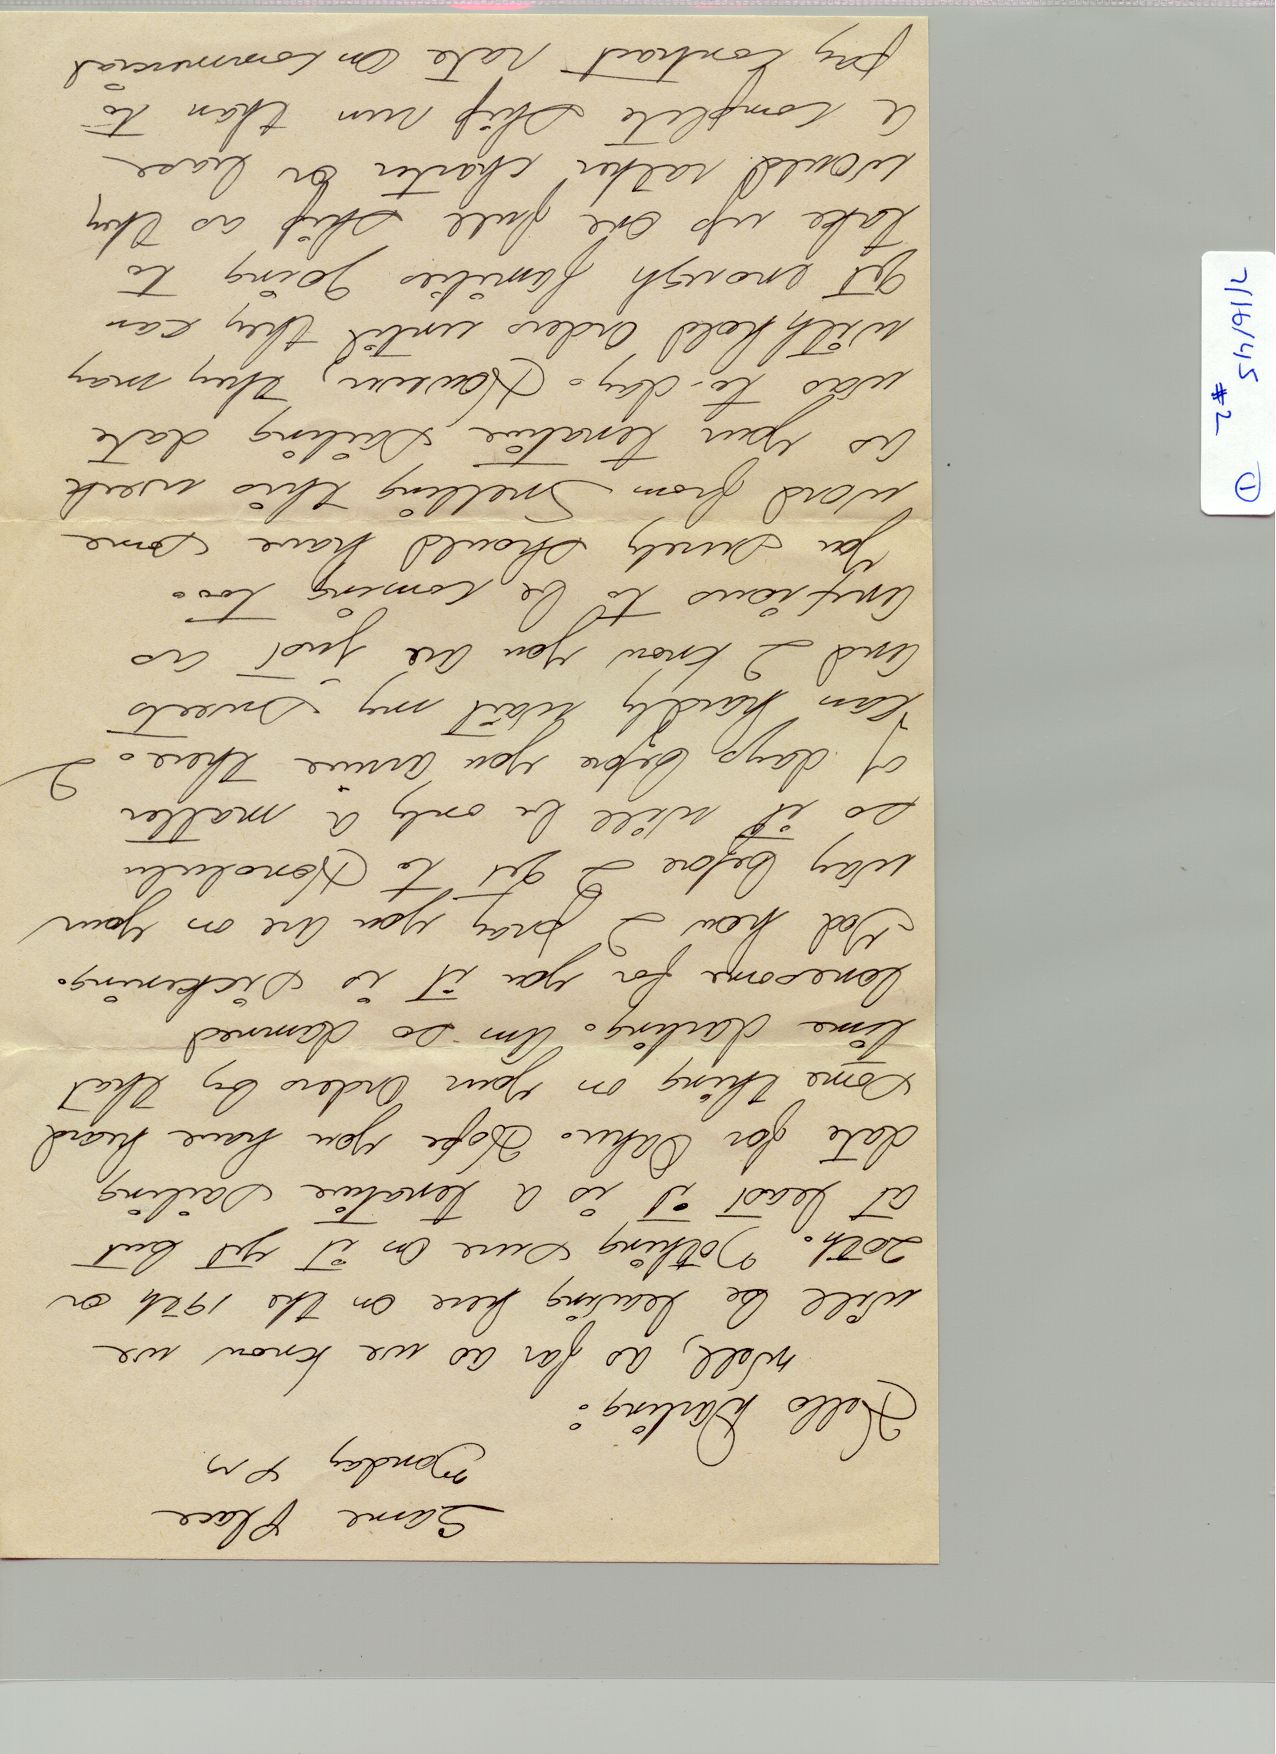 7/16/45
#2
①
Same Place
Monday PM
Hello Darling:
Well, as far as we know we
will be leaving here on the 19th or
20th. Nothing sure on it yet but
at least it is a tenative sailing
date for Oahu. Hope you have heard
some thing on your orders by that
time darling. Am so damned
lonesome for you it is sickening.
God how I pray you are on your
way before I get to Honolulu
so it will be only a matter
of days before you arrive there. I
can hardly wait my sweets
and I know you are just as
anxious to be coming too.
You surely should have some
word from Snelling this week
as your tenative sailing date
was to-day. However, they may
withhold orders until they can
get enough families going to
take up one full ship as they
would rather charter or have
a complete ship run than to
pay contract rate on commercial